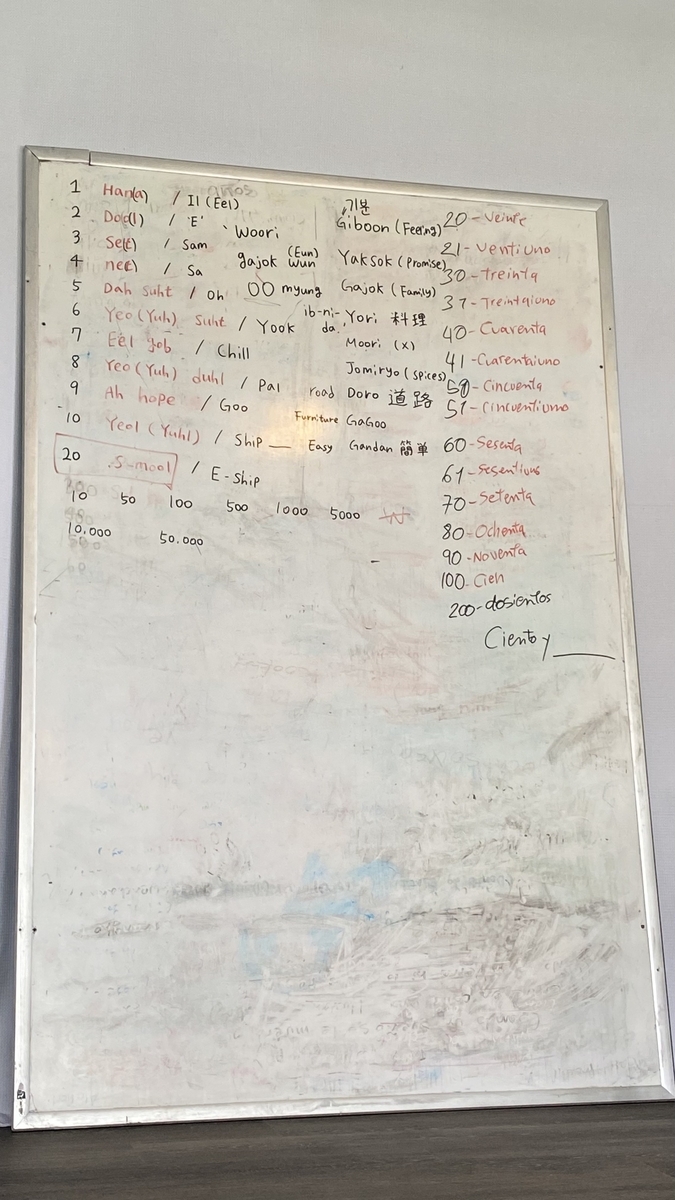 1 Han(a) / Il (Eel)
2 Do(l) / 'E'
3 Se(t) / Sam
4 ne(t) / Sa
5 Dah suht / Oh
6 Yeo (Yuh) Suht / Yook
7 Eel gob / Chill
8 Yeo (Yuh) duhl / Pal
9 Ah hope / Goo
10 Yeol (Yuhl) / Ship
20 S-mool / E-Ship
10 50 100 500 1000 5000 ₩
10.000 50.000
Woori
(Eun)
gajok wun
OO myung
ib-ni-
da.
기분
Giboon (Feeling)
Yaksok (Promise)
Gajok (Family)
Yori 料理
Moori (x)
Jomiryo (spices)
road Doro 道路
Furniture GaGoo
Easy Gandan 簡単
20 - Veinte
21 - Ventiuno
30 - treinta
31 - Treintaiuno
40 - Cuarenta
41 - Cuarentaiuno
50 - Cincuenta
51 - Cincuentiuno
60 - Sesenta
61 - Sesentiuno
70 - Setenta
80 - Ochenta
90 - Noventa
100 - Cien
200 - dosientos
Ciento y ____